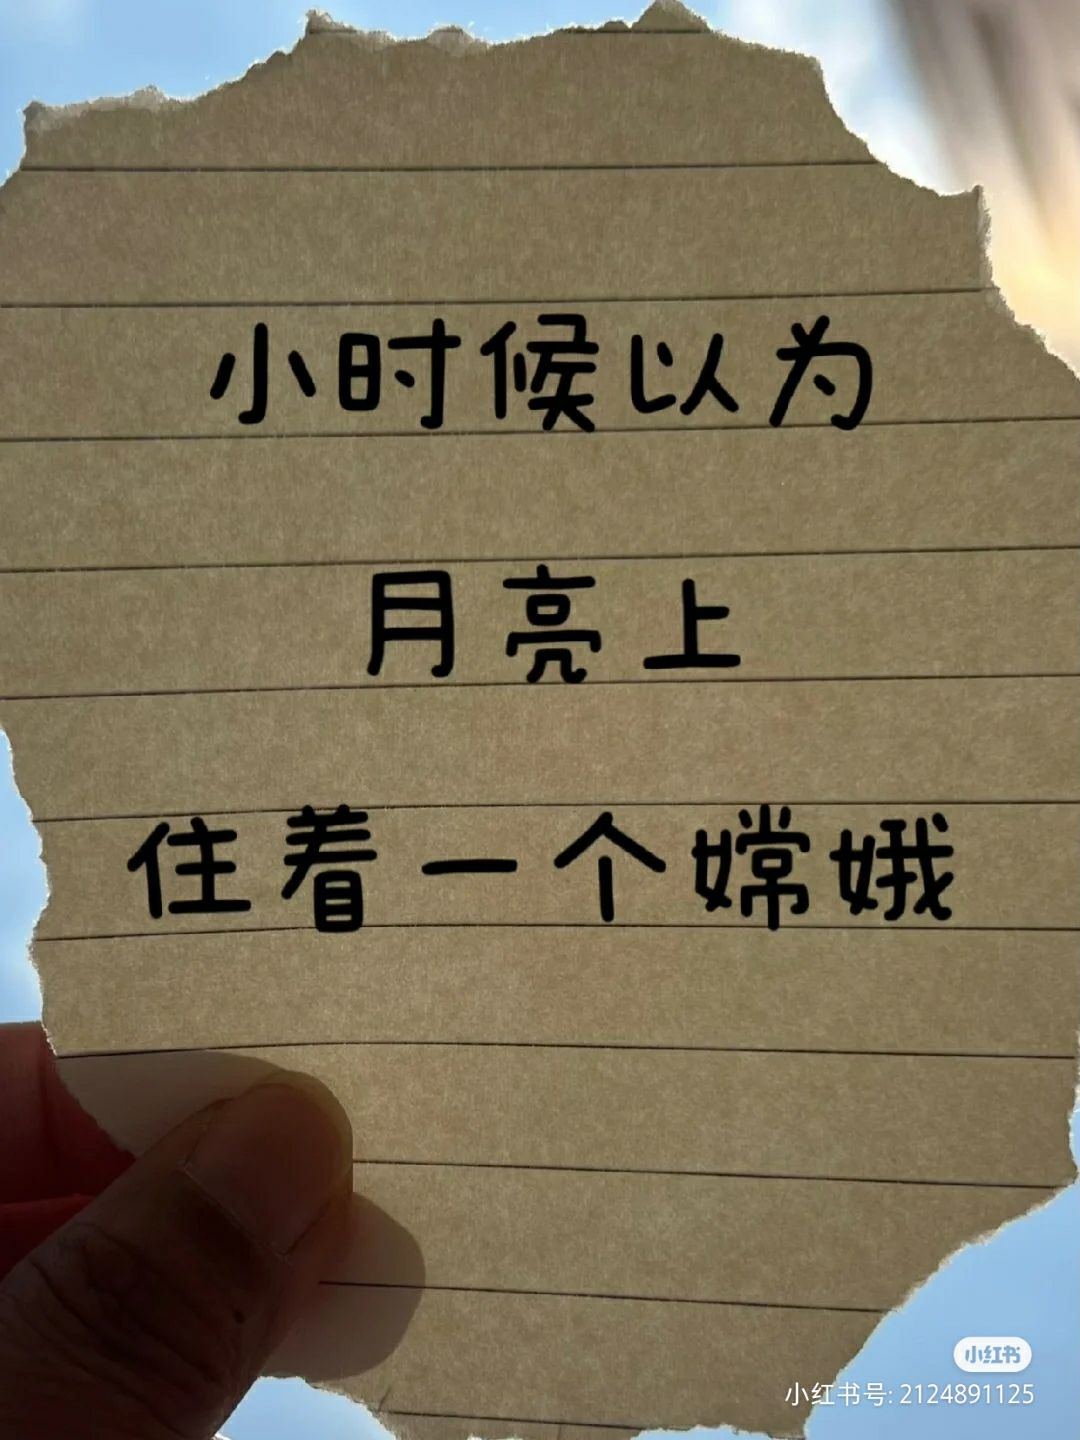 小时候以为
月亮上
住着一个嫦娥
小红书
小红书号: 2124891125